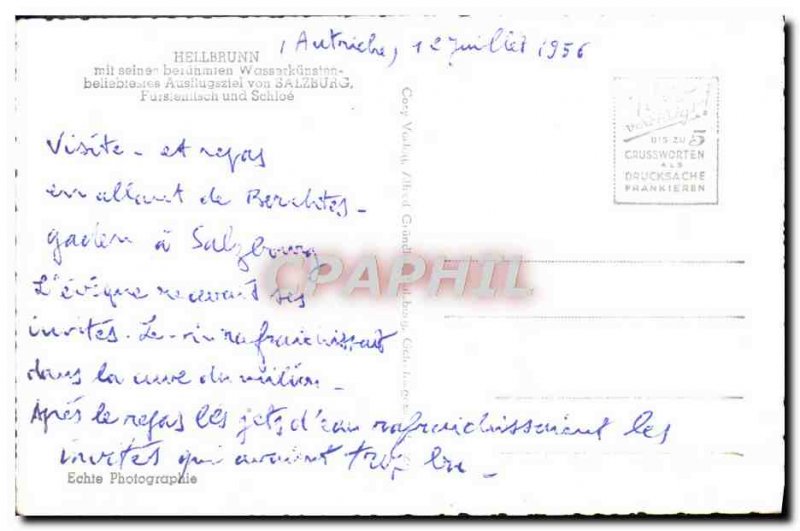 Autriche, 12 juillet 1956
HELLBRUNN
mit seinen berühmten Wasserkünsten-
beliebtestes Ausflugsziel von SALZBURG,
Fürstentisch und Schloß
BIS ZU 5
GRUSSWORTEN
ALS
DRUCKSACHE
FRANKIEREN
Visite - et repas
en allant de Berchtes-
gaden à Salzbourg
L'évêque recevant ses
invités. Le vin rafraichissait
dans la cuve du milieu -
Après le repas les jets d'eau rafraichissaient les
invités qui avaient trop bu -
Echte Photographie
Cosy Verlag Alfred Gründler, Salzburg,
CPAPHIL